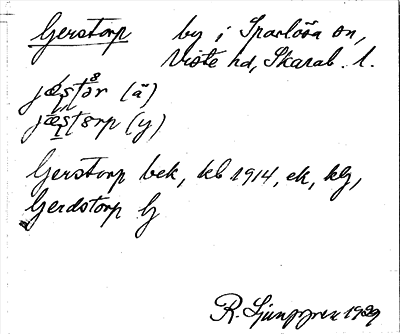 Gerstorp by i Sparlösa sn,
Viste hd, Skarab. l.
jæstər (ä)
jæstərp (y)
Gerstorp bek, kb 1914, ek, kg,
Gerdstorp lj
R. Ljunggren 1929